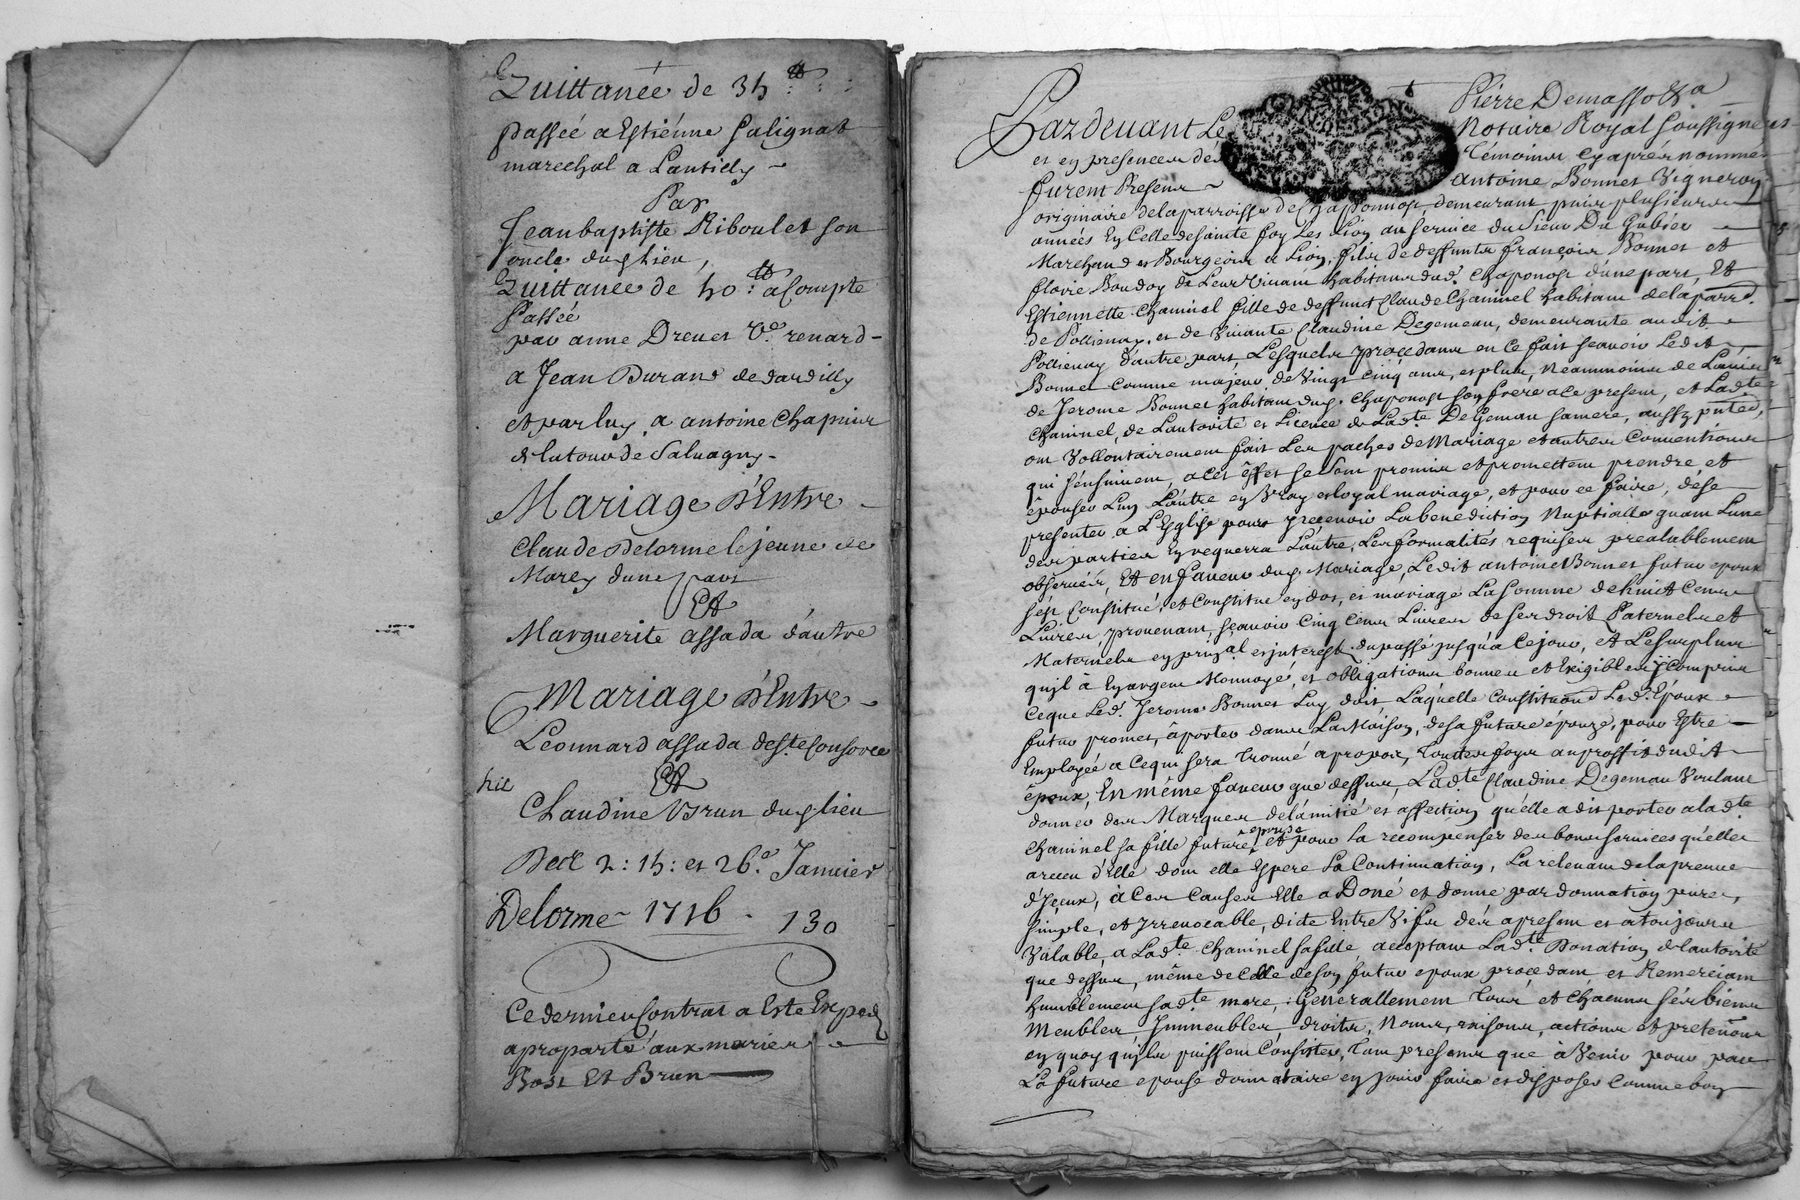 Quittance de 34 ₶
passée a Estienne Salignat
marechal a Lantilly
Par
Jean baptiste Riboulet son
oncle dud lieu,
Quittance de 40 ₶ a Compte
Passée
par anne Dreuet Ve. renard
a Jean Durand de dardilly
et par luy a antoine Chapuis
de latour de Salvagny
Mariage D'Entre
Claude Delorme le jeune de
Marcy dune part
Et
Marguerite assada d'autre
Mariage D'Entre
Leonnard assada de ste Consorce
Et
Claudine Brun dud lieu
Delorme 1716 130
Ce dernier Contrat a Esté Exped
aux mariés
Et Brun
Pierre Demasso
Pardevant Le Notaire Royal soussigné
et en presence des témoins cy après nommés
furent Presens antoine Bonnet Vigneron
originaire de la parroisse de Chaponnost, demeurant puis plusieurs
années En Celle de Sainte foy Les Lion au service du Sieur Du Gubier
Marchand et Bourgeois a Lion, fils de deffunts françois Bonnet et
de Leur Vivant habitans dud. Chaponost d'une part, Et
Estiennette Chaninel fille de deffunct Claude Chaninel habitant de la parr.
de Pollienay, et de Vivante Claudine Degeneau, demeurante audit
Pollienay d'autre part, Lesquels procedans en ce fait sçavoir Ledit
Bonnet comme majeur de Vingt cinq ans, et plus, neammoins de L'avis
de Jerome Bonnet habitant dud. Chaponost son frere a ce present, et Ladte
Chaninel, de Lautorité et Licence de Ladte. Degeneau sa mere, aussy pnte,
ont Vollontairement fait Les paches de Mariage et autres Conventions
qui s'ensuivent, a cet êffet se sont promis et promettent prendre et
épouser L'un L'autre en Vray et loyal mariage, et pour ce faire, de se
presenter a L'Eglise pour y recevoir La benediction Nuptialle quant L'une
des parties En requerra Lautre, Les formalités requises prealablement
observées, Et en faveur dud. Mariage, Ledit antoine Bonnet futur epoux
s'est Constitué, et Constitue en dot, et mariage La somme de huit Cens
Livres provenant, sçavoir Cinq Cens Livres de ses droits Paternels et
Maternels en prinal. et interest du passé jusqu'a ce jour, et Le surplus
qu'il â En argent Monnoyé, et obligations bonnes et Exigibles y Compris
Ce que Led. Jerome Bonnet Luy doit Laquelle Constituon Led. Epoux
futur promet, âporter dans La Maison, de sa future épouze, pour Estre
Employée a ce qui sera trouvé a propos, toutes foys au proffit dudit
époux, En même faveur que dessus, Ladte. Claudine Degeneau Voulant
donner des Marques de l'amitié et affection qu'elle a dit porter a ladte.
Chaninel sa fille future epouse et pour la recompenser des bons services qu'elle a
receu d'Elle dont elle Espere La Continuation, La relevant de la preuve
d'Jceux, â Ces Causes Elle a Doné et donne par donnation pure,
simple, et Irrevocable, dite Entre Vifs des a present et a toujours
Valable, a Ladte. Chaninel sa fille, acceptant Ladte. Donation de l'autorité
que dessus, même de Celle de son futur epoux procedant, et Remerciant
humblement sadte. mere, Generallement tous et Chacuns ses biens
Meubles, Immeubles, droits, Noms, raisons, actions et pretentions
en quoy qu'ils puissent Consister, tant presens que à Venir pour par
La future epouse donnataire en jouir faire et disposer Comme bon